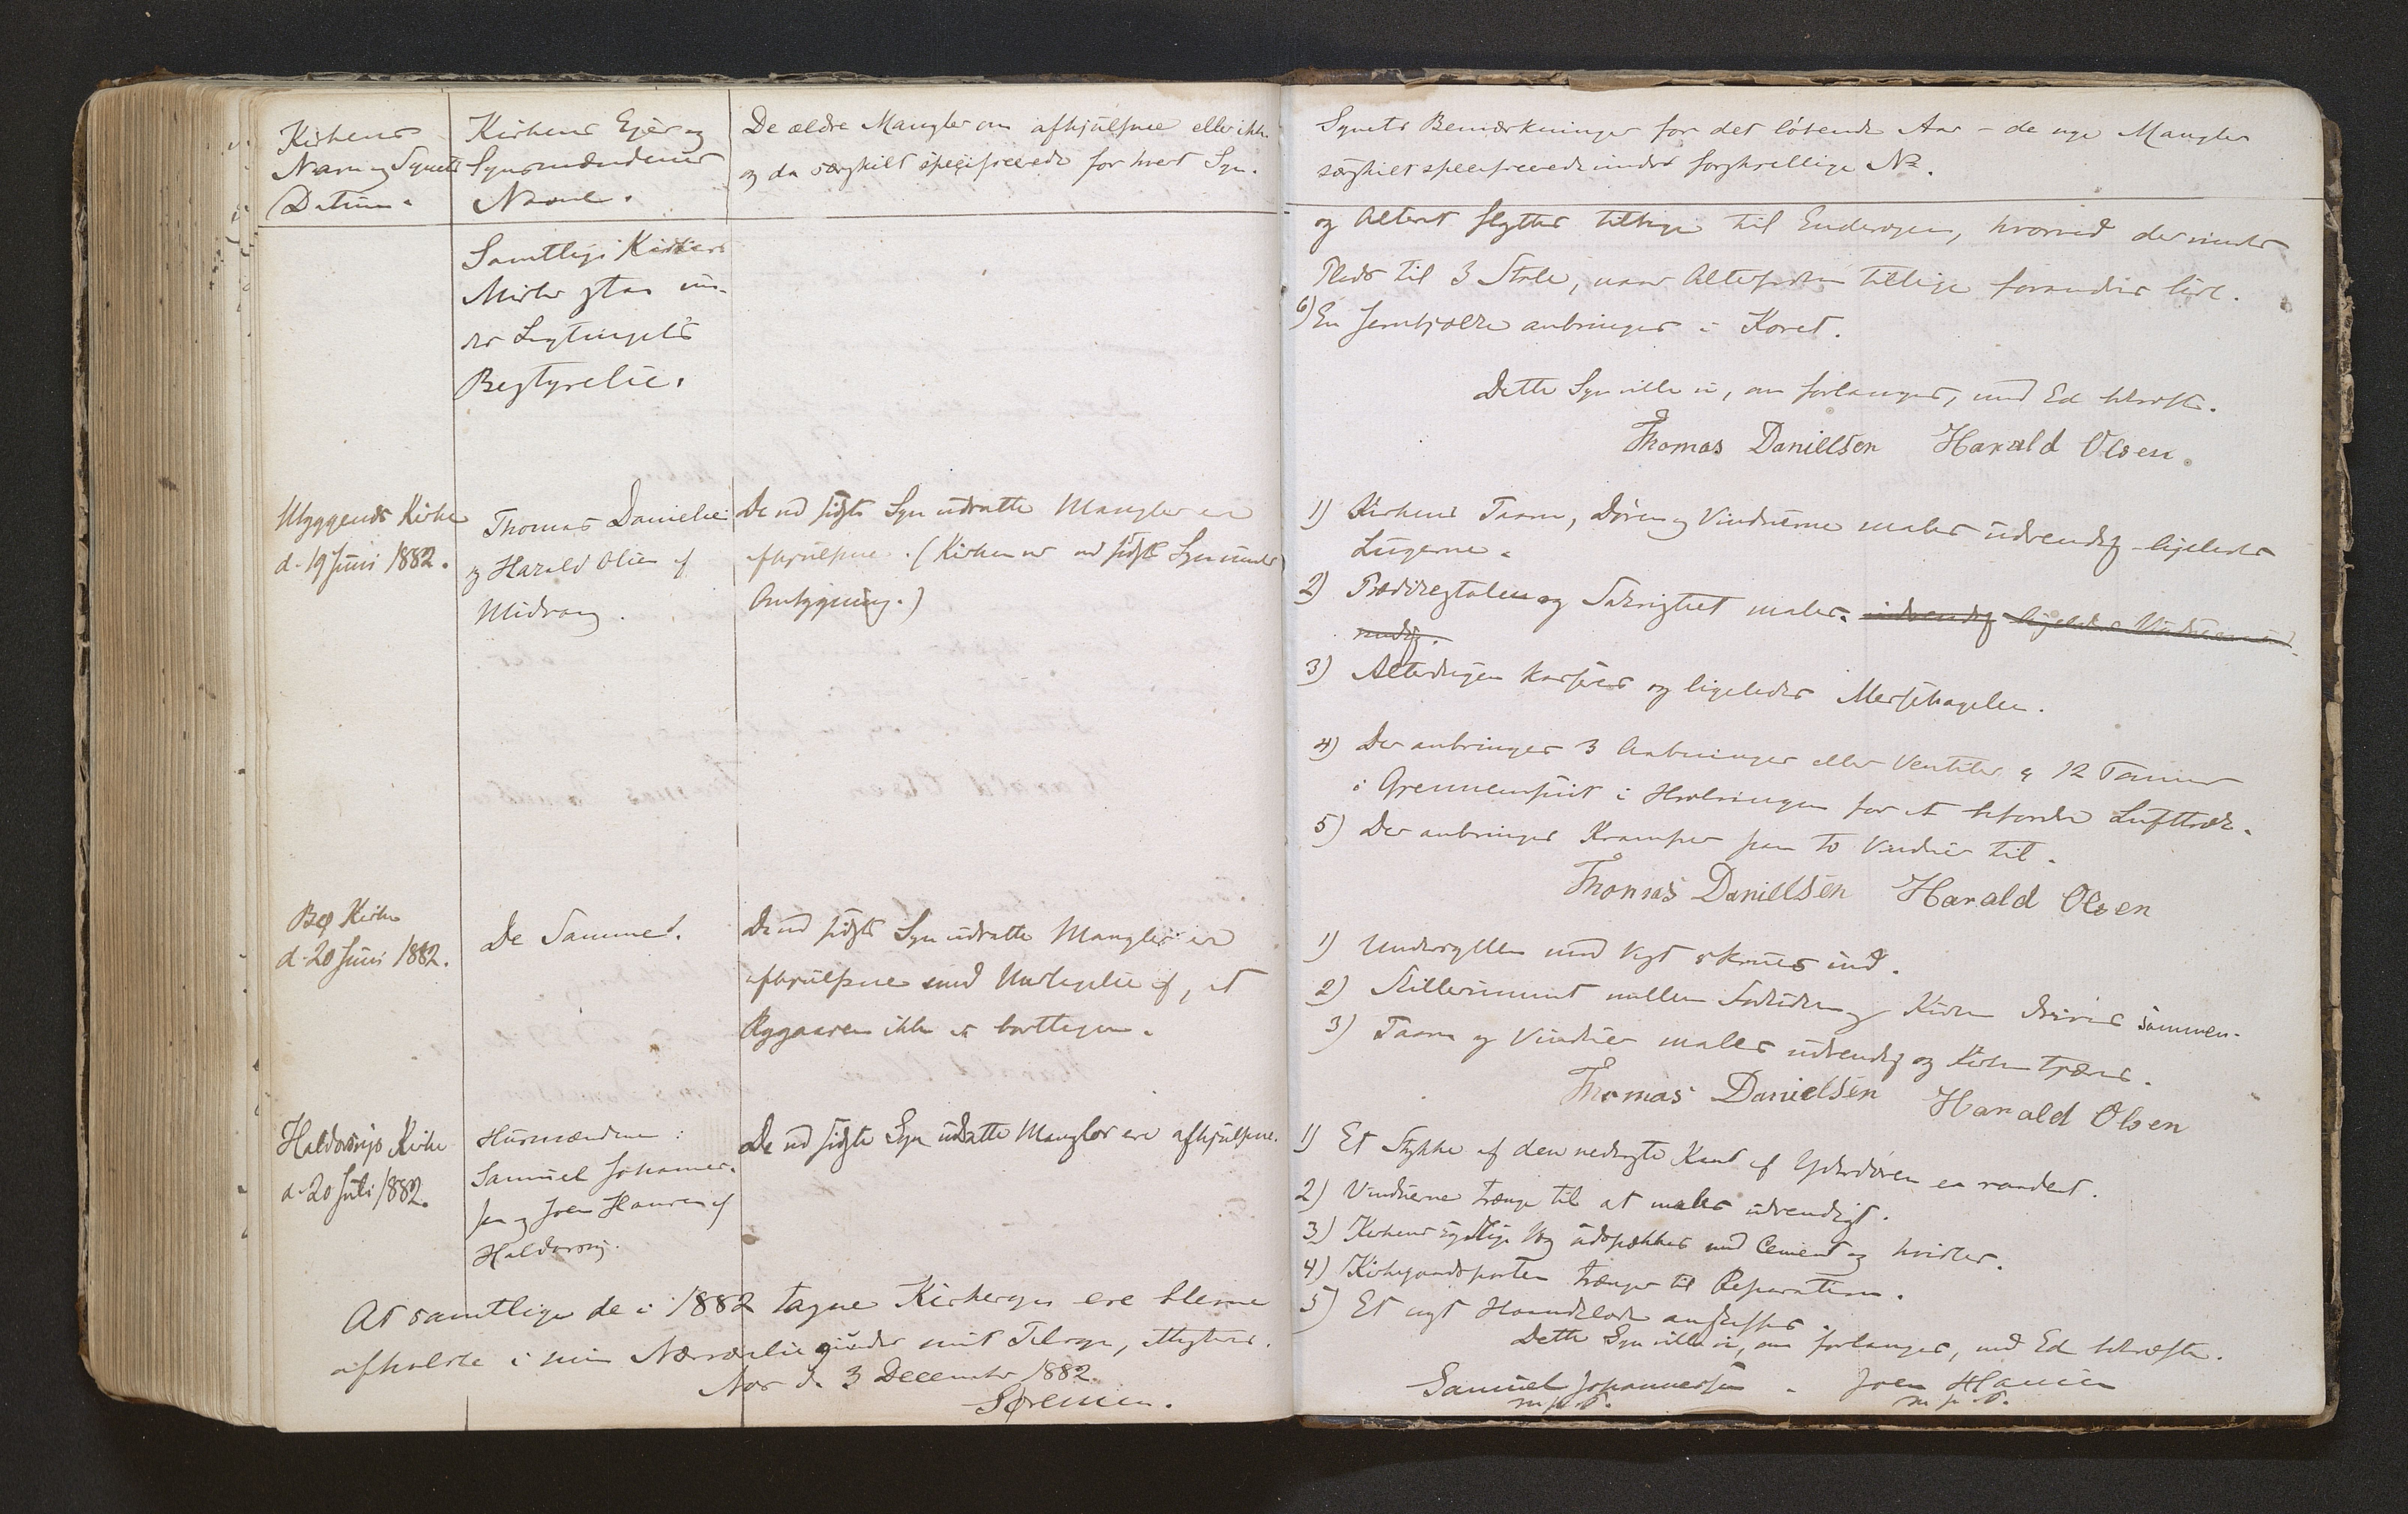 Kirkens
Navn og Synets
Datum.
Kirkens Ejer og
Synsmændenes
Navne.
De ældre Mangler om afhjulpne eller ikke
og da særskilt specificerede for hvert Syn.
Samtlige Kirker
Mirke staa un-
der Lagtingets
Bestyrelse.
Myggenæs Kirke
d. 19 Juni 1882.
Thomas Danielsen
og Harald Olsen af
Midvaag.
De ved sidste Syn udsatte Mangler ere
afhjulpne. (Kirken var ved sidste Syn under
Ombygning.)
Bø Kirke
d. 20 Juni 1882.
De Samme.
De ved sidste Syn udsatte Mangler ere
afhjulpne med Undtagelse af, at
Rygaasen ikke er borttagen.
Haldorsvigs Kirke
d. 20 Juli 1882.
Husmændene:
Samuel Johannes-
sen og Joen Hansen af
Haldorsvig.
De ved sidste Syn udsatte Mangler ere afhjulpne.
At samtlige de i 1882 tagne Kirkesyn ere blevne
afholdte i min Nærværelse og under mit Tilsyn, attesteres.
Næs d. 3 December 1882.
Sørensen.
Synets Bemærkninger for det løbende Aar - de nye Mangler
særskilt specificerede under forskjellige No.
og Alteret flyttes tillige til Endevæggen, hvorved der vindes
Plads til 3 Stole, naar Alterfoden tillige forandres lidt.
6) En Jernbjælke anbringes i Koret.
Dette Syn ville vi, om forlanges, med Ed bekræfte.
Thomas Daniellsen Harald Olsen.
1) Kirkens Taarn, Døren og Vinduerne males udvendig ligeledes
Lugerne.
2) Prædikestolen og Sakristiet males. indvendig ligeledes Vinduerne ind-
vendig.
3) Alterdugen kasseres og ligeledes Messehagelen.
4) Der anbringes 3 Aabninger eller Ventiler a 12 Tommer
i Gjennemsnit i Hvælvingen for at befordre Lufttræk.
5) Der anbringes Kramper paa to Vinduer til.
Thomas Daniellsen Harald Olsen
1) Undersyllen mod Vest skrues ind.
2) Skillerummet mellem Forkirken og Kirken drives sammen.
3) Taarn og Vinduer males udvendig og Kirken tjæres.
Thomas Daniellsen Harald Olsen
1) Et Stykke af den nederste Kant af Yderdøren er raadent.
2) Vinduerne trænge til at males udvendigt.
3) Kirkens sydlige Væg udspækkes med Cement og hvidtes.
4) Kirkegaardsporten trænger til Reparation.
5) Et nyt Haandklæde anskaffes.
Dette Syn ville vi, om forlanges, med Ed bekræfte.
Samuel Johannessen - Joen Hansen
m. p. P. m. p. P.